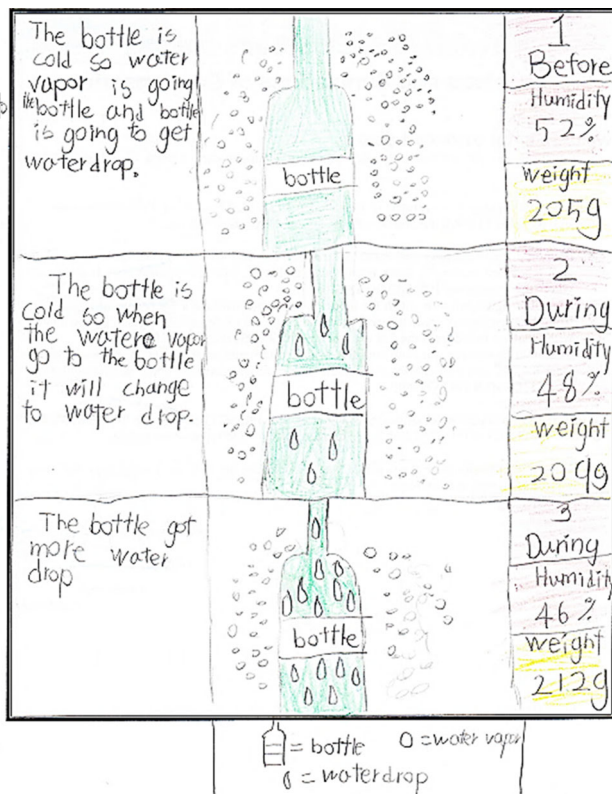 The bottle is
cold so water
vapor is going
the bottle and bottle
is going to get
waterdrop.
bottle
1
Before
Humidity
52%
weight
205g
The bottle is
cold so when
the watere vapor
go to the bottle
it will change
to water drop.
bottle
2
During
Humidity
48%
weight
209g
The bottle got
more water
drop
bottle
3
During
Humidity
46%
weight
212g
= bottle
= water vapor
= waterdrop